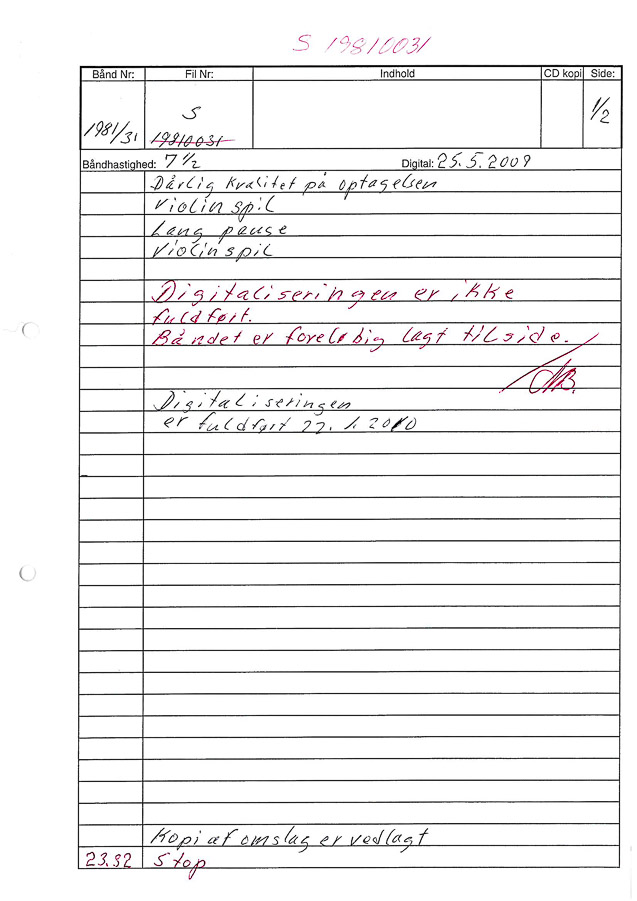 S 19810031
Bånd Nr: Fil Nr: Indhold CD kopi Side:
1981/31 S 19810031 1/2
Båndhastighed: 7 1/2 Digital: 25.5.2009
Dårlig kvalitet på optagelsen
Violinspil
Lang pause
Violinspil
Digitaliseringen er ikke
fuldført.
Båndet er foreløbig lagt til side.
Digitaliseringen
er fuldført 22.1.2010
Kopi af omslag er vedlagt
23.32 Stop